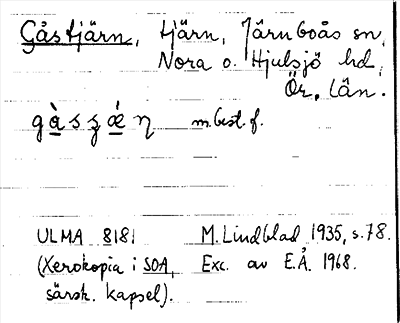 Gåstjärn, tjärn, Järnboås sn,
Nora o. Hjulsjö hd,
Ör. Län.
gàsʒǽη m. best. f.
ULMA 8181 M. Lindblad 1935, s. 78.
(Xerokopia i SOA, Exc. av E.Å. 1968.
särsk. kapsel).